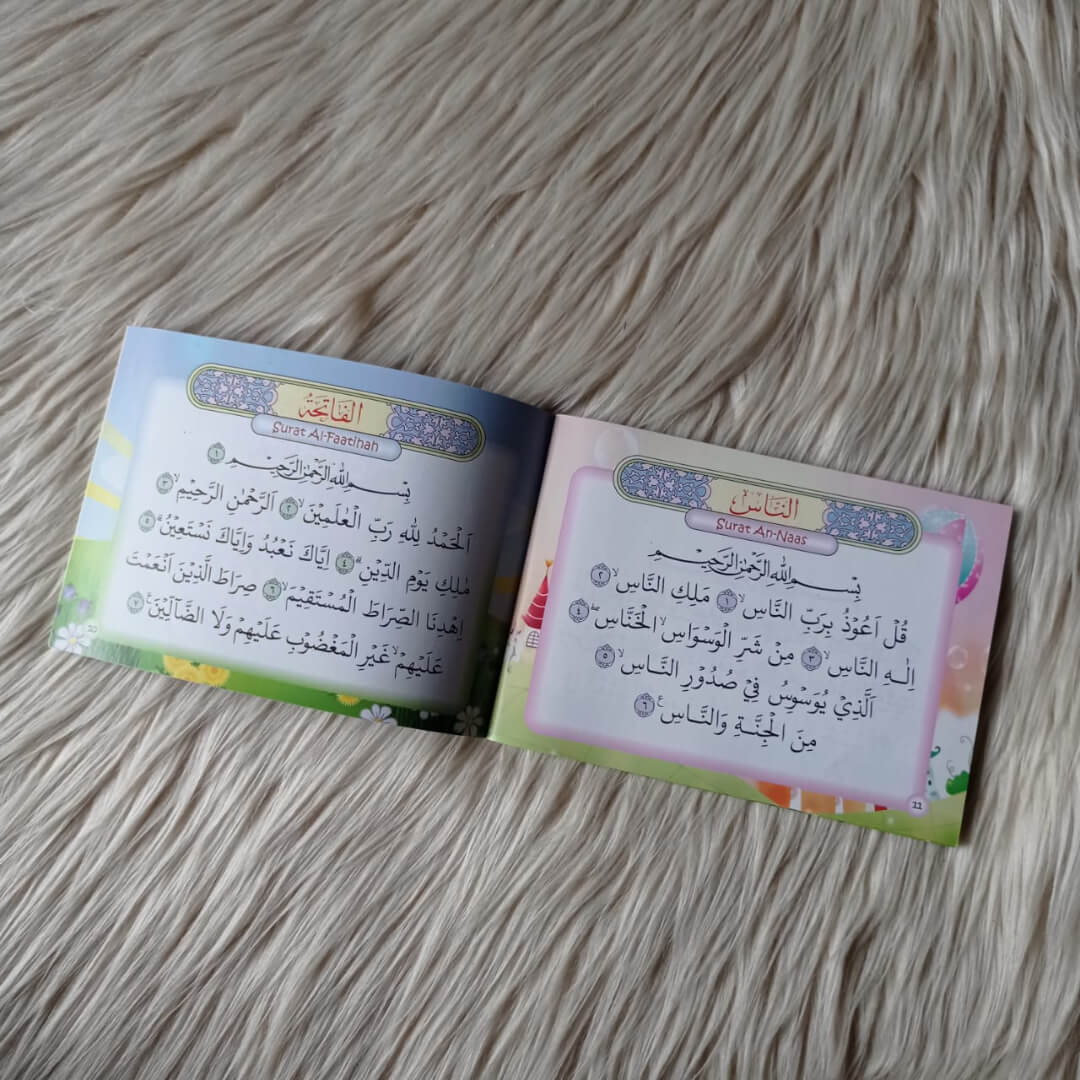 الفَاتِحَةُ
Surat Al-Faatihah
بِسْمِ اللهِ الرَّحْمٰنِ الرَّحِيْمِ ١
اَلْحَمْدُ لِلّٰهِ رَبِّ الْعٰلَمِيْنَۙ ٢ اَلرَّحْمٰنِ الرَّحِيْمِۙ ٣
مٰلِكِ يَوْمِ الدِّيْنِۗ ٤ اِيَّاكَ نَعْبُدُ وَاِيَّاكَ نَسْتَعِيْنُۗ ٥
اِهْدِنَا الصِّرَاطَ الْمُسْتَقِيْمَۙ ٦ صِرَاطَ الَّذِيْنَ اَنْعَمْتَ
عَلَيْهِمْۙ غَيْرِ الْمَغْضُوْبِ عَلَيْهِمْ وَلَا الضَّاۤلِّيْنَࣖ ٧
النَّاسِ
Surat An-Naas
بِسْمِ اللهِ الرَّحْمٰنِ الرَّحِيْمِ
قُلْ اَعُوْذُ بِرَبِّ النَّاسِۙ ١ مَلِكِ النَّاسِۙ ٢
اِلٰهِ النَّاسِۙ ٣ مِنْ شَرِّ الْوَسْوَاسِۙ الْخَنَّاسِۖ ٤
الَّذِيْ يُوَسْوِسُ فِيْ صُدُوْرِ النَّاسِۙ ٥
مِنَ الْجِنَّةِ وَالنَّاسِࣖ ٦
22